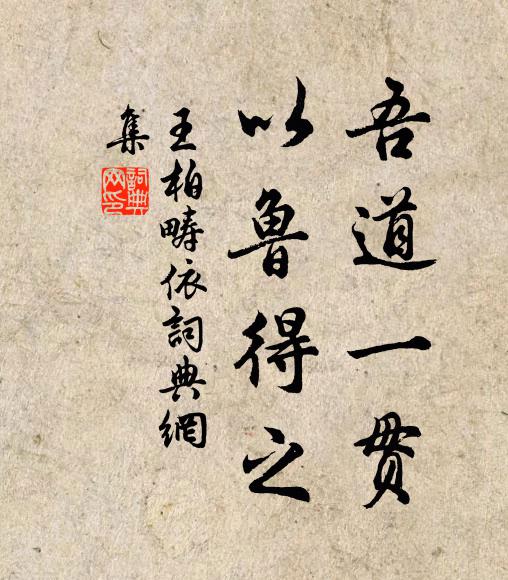 吾道一贯
以鲁得之
王柏畴依詞典網
集
詞典
网印